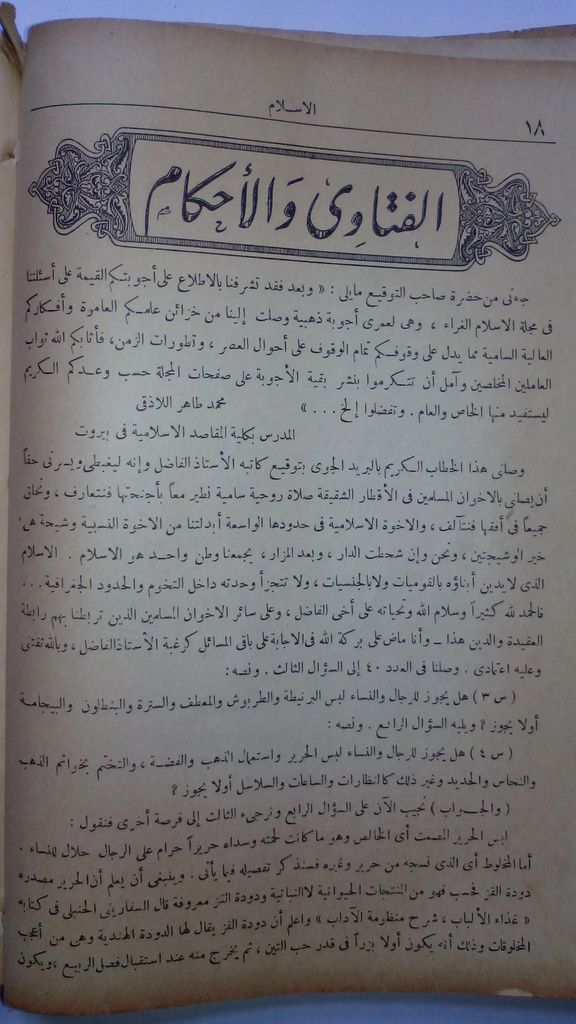 الاسلام
١٨
الفتاوى والأحكام
جاءنى من حضرة صاحب التوقيع مايلى : « وبعد فقد تشرفنا بالاطلاع على أجوبتكم القيمة على أسئلتنا
فى مجلة الاسلام الغراء ، وهى لعمرى أجوبة ذهبية وصلت إلينا من خزائن علمكم العامرة وأفكاركم
العالية السامية مما يدل على وقوفكم تمام الوقوف على أحوال العصر ، وتطورات الزمن، فأثابكم الله ثواب
العاملين المخلصين وآمل أن تتكرموا بنشر بقية الأجوبة على صفحات المجلة حسب وعدكم الكريم
ليستفيد منها الخاص والعام . وتفضلوا إلخ . . . » محمد طاهر اللاذقى
المدرس بكلية المقاصد الاسلامية فى بيروت
وصلنى هذا الخطاب الكريم بالبريد الجوى بتوقيع كاتبه الأستاذ الفاضل وإنه ليغبطنى ويسرنى حقاً
أن يصلنى بالاخوان المسلمين فى الأقطار الشقيقة صلاة روحية سامية نطير معاً بأجنحتها فنتعارف ، ونحلق
جميعاً فى أفقها فنتآلف ، والاخوة الاسلامية فى حدودها الواسعة أبدلتنا من الاخوة النسبية وشيجة هى
خير الوشيجتين ، ونحن وإن شحطت الدار ، وبعد المزار ، يجمعنا وطن واحد هو الاسلام . الاسلام
الذى لايدين أبناؤه بالقوميات ولابالجنسيات ، ولا تتجزأ وحدته داخل التخوم والحدود الجغرافية . . .
فالحمد لله كثيراً وسلام الله وتحياته على أخى الفاضل ، وعلى سائر الاخوان المسلمين الذين تربطنا بهم رابطة
العقيدة والدين هذا ــ وأنا ماض على بركة الله فى الاجابة على باقى المسائل كرغبة الأستاذ الفاضل ، وبالله ثقتى
وعليه اعتمادى . وصلنا فى العدد ٤٠ إلى السؤال الثالث . ونصه :
( س ٣ ) هل يجوز للرجال والنساء لبس البرنيطة والطربوش والمعطف والسترة والبنطلون والبيجامة
أولا يجوز ؟ ويليه السؤال الرابع . ونصه :
( س ٤ ) هل يجوز للرجال والنساء لبس الحرير واستعمال الذهب والفضة ، والتختم بخواتم الذهب
والنحاس والحديد وغير ذلك كالنظارات والساعات والسلاسل أولا يجوز ؟
( والجــواب ) نجيب الآن على السؤال الرابع ونرجىء الثالث إلى فرصة أخرى فنقول :
لبس الحرير المصمت أى الخالص وهو ما كانت لحمته وسداه حريراً حرام على الرجال حلال للنساء .
أما المخلوط أى الذى نسجه من حرير وغيره فسنذكر تفصيله فيما يأتى . وينبغى أن يعلم أن الحرير مصدره
دودة القز فحسب فهو من المنتجات الحيوانية لا النباتية ودودة القز معروفة قال السفارينى الحنبلى فى كتابه
« غذاء الألباب ، شرح منظومة الآداب » واعلم أن دودة القز يقال لها الدودة الهندية وهى من أعجب
المخلوقات وذلك أنه يكون أولا بزراً فى قدر حب التين ، ثم يخرج منه عند استقبال فصل الربيع ، ويكون